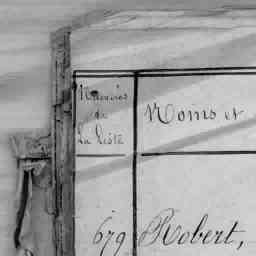 Numéros
de
La Liste
Noms et
679 Robert,